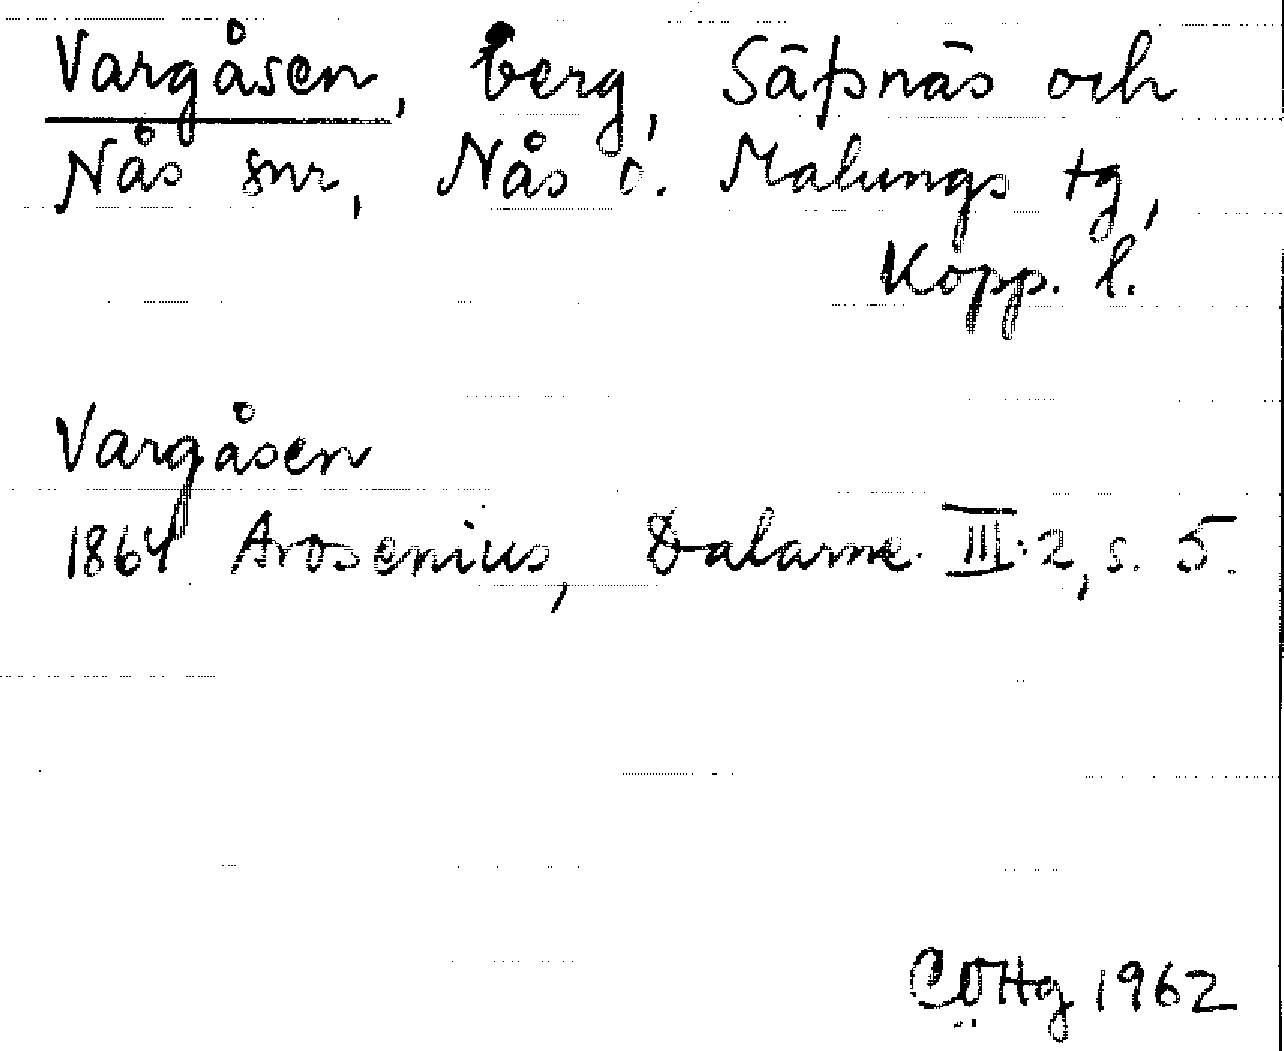 Vargåsen, berg, Säfsnäs och
Nås snr, Nås o. Malungs tg,
Kopp. l.
Vargåsen
1864 Arosenius, Dalarne III:2, s. 5.
CÖHg 1962